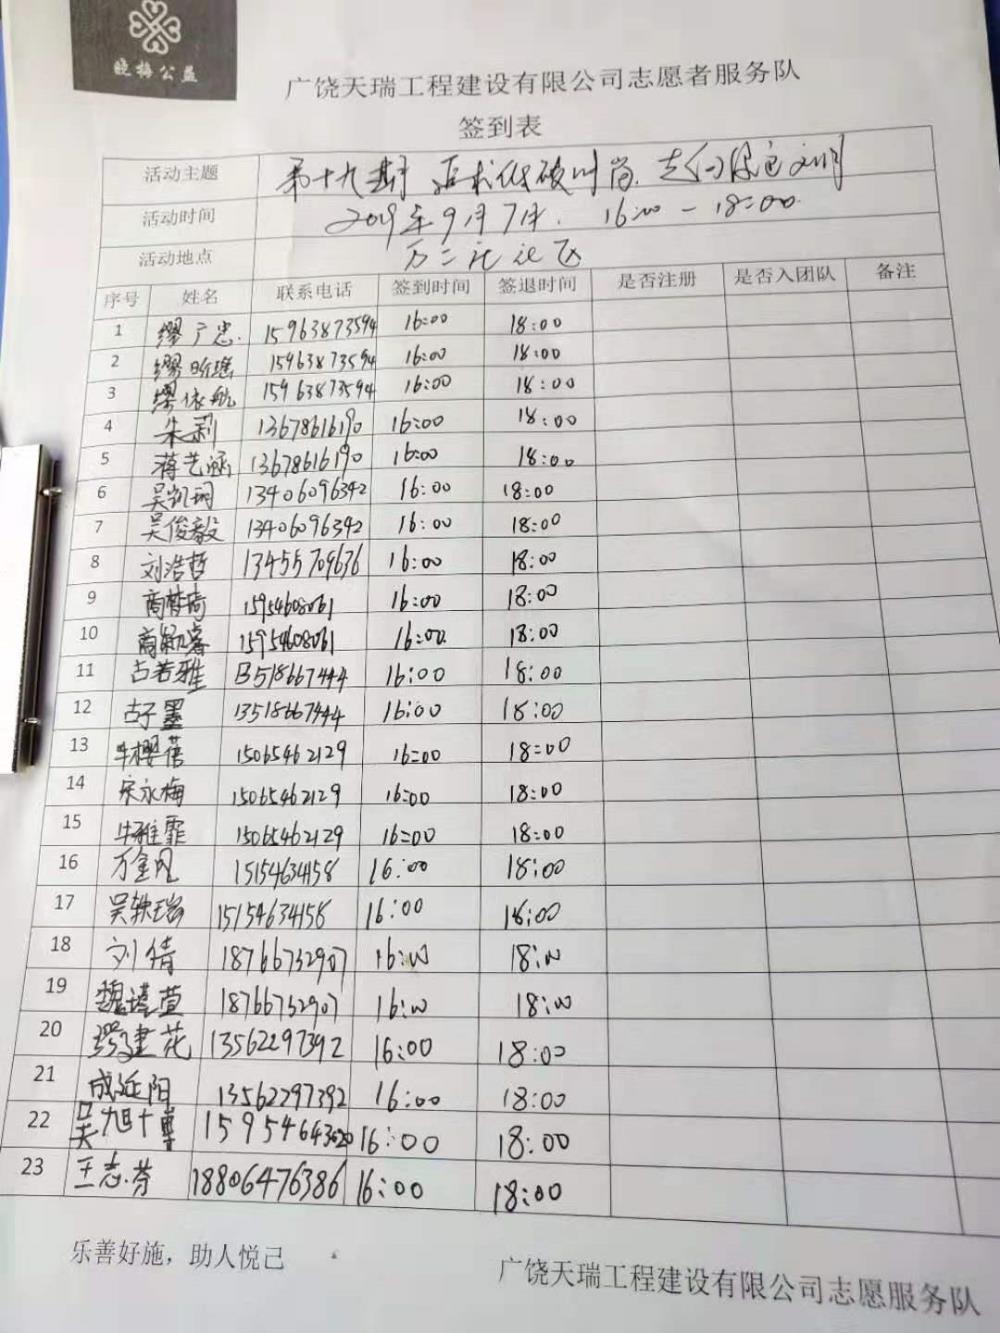 晓梅公益
广饶天瑞工程建设有限公司志愿者服务队
签到表
活动主题 第十九期 追求低碳时尚、走向绿色文明
活动时间 2019年9月7日. 16:00-18:00
活动地点
序号 姓名 联系电话 签到时间 签退时间 是否注册 是否入团队 备注
1 缪广忠 15963873594 16:00 18:00
2 15963873594 16:00 18:00
3 缪依航 15963873594 16:00 18:00
4 朱莉 13678616190 16:00 18:00
5 蒋艺涵 13678616190 16:00 18:00
6 吴凯玥 13406096342 16:00 18:00
7 吴俊毅 13406096342 16:00 18:00
8 刘浩哲 13455709636 16:00 18:00
9 15954608061 16:00 18:00
10 15954608061 16:00 18:00
11 古若雅 13518667444 16:00 18:00
12 古子墨 13518667444 16:00 18:00
13 牛樱蓓 15065462129 16:00 18:00
14 宋永梅 15065462129 16:00 18:00
15 牛雅霏 15065462129 16:00 18:00
16 万金凤 15154634158 16:00 18:00
17 吴轶瑞 15154634158 16:00 18:00
18 刘倩 18766732907 16:00 18:00
19 魏瑾萱 18766732907 16:00 18:00
20 建花 13562297392 16:00 18:00
21 成近阳 13562297392 16:00 18:00
22 吴旭十尊 15954643020 16:00 18:00
23 王志芬 18806476386 16:00 18:00
乐善好施，助人悦己
广饶天瑞工程建设有限公司志愿服务队